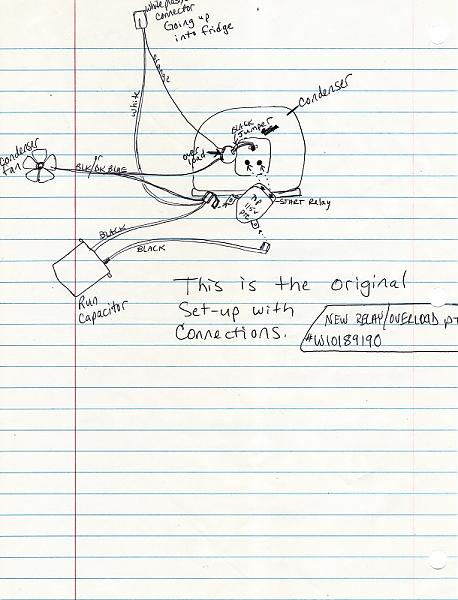 white plastic
connector
Going up
into fridge
orange
white
Condenser
BLACK
Jumper
over
load
Condenser
fan
BLK/DK BLUE
START Relay
115V
BLACK
BLACK
Run
Capacitor
This is the original
Set-up with
Connections.
NEW RELAY/OVERLOAD pt
#W10189190